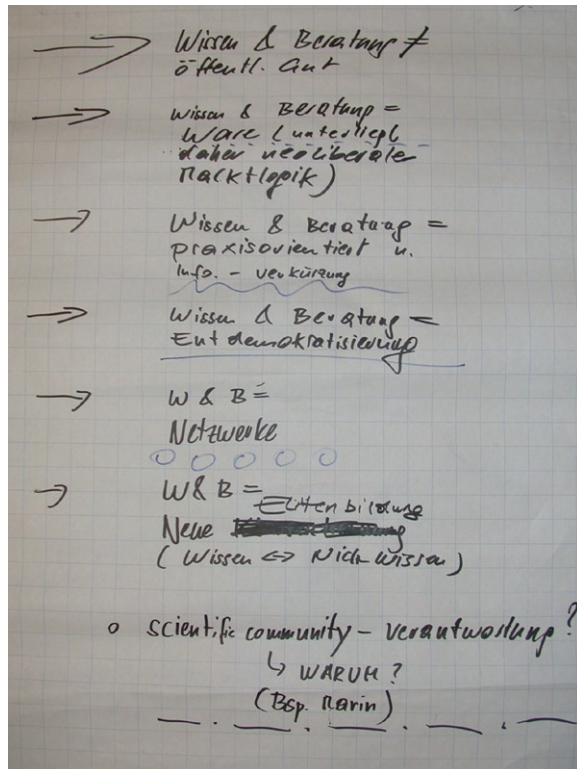 → Wissen & Beratung ≠
öffentl. Gut
→ Wissen & Beratung =
Ware (unterliegt
daher neoliberale
Marktlogik)
→ Wissen & Beratung =
praxisorientiert u.
Info. - verkürzung
→ Wissen & Beratung =
Entdemokratisierung
→ W & B =
Netzwerke
→ W & B =
Elitenbildung
Neue
(Wissen <=> Nicht-Wissen)
o scientific community - verantwortung?
↳ WARUM?
(Bsp. Marin)